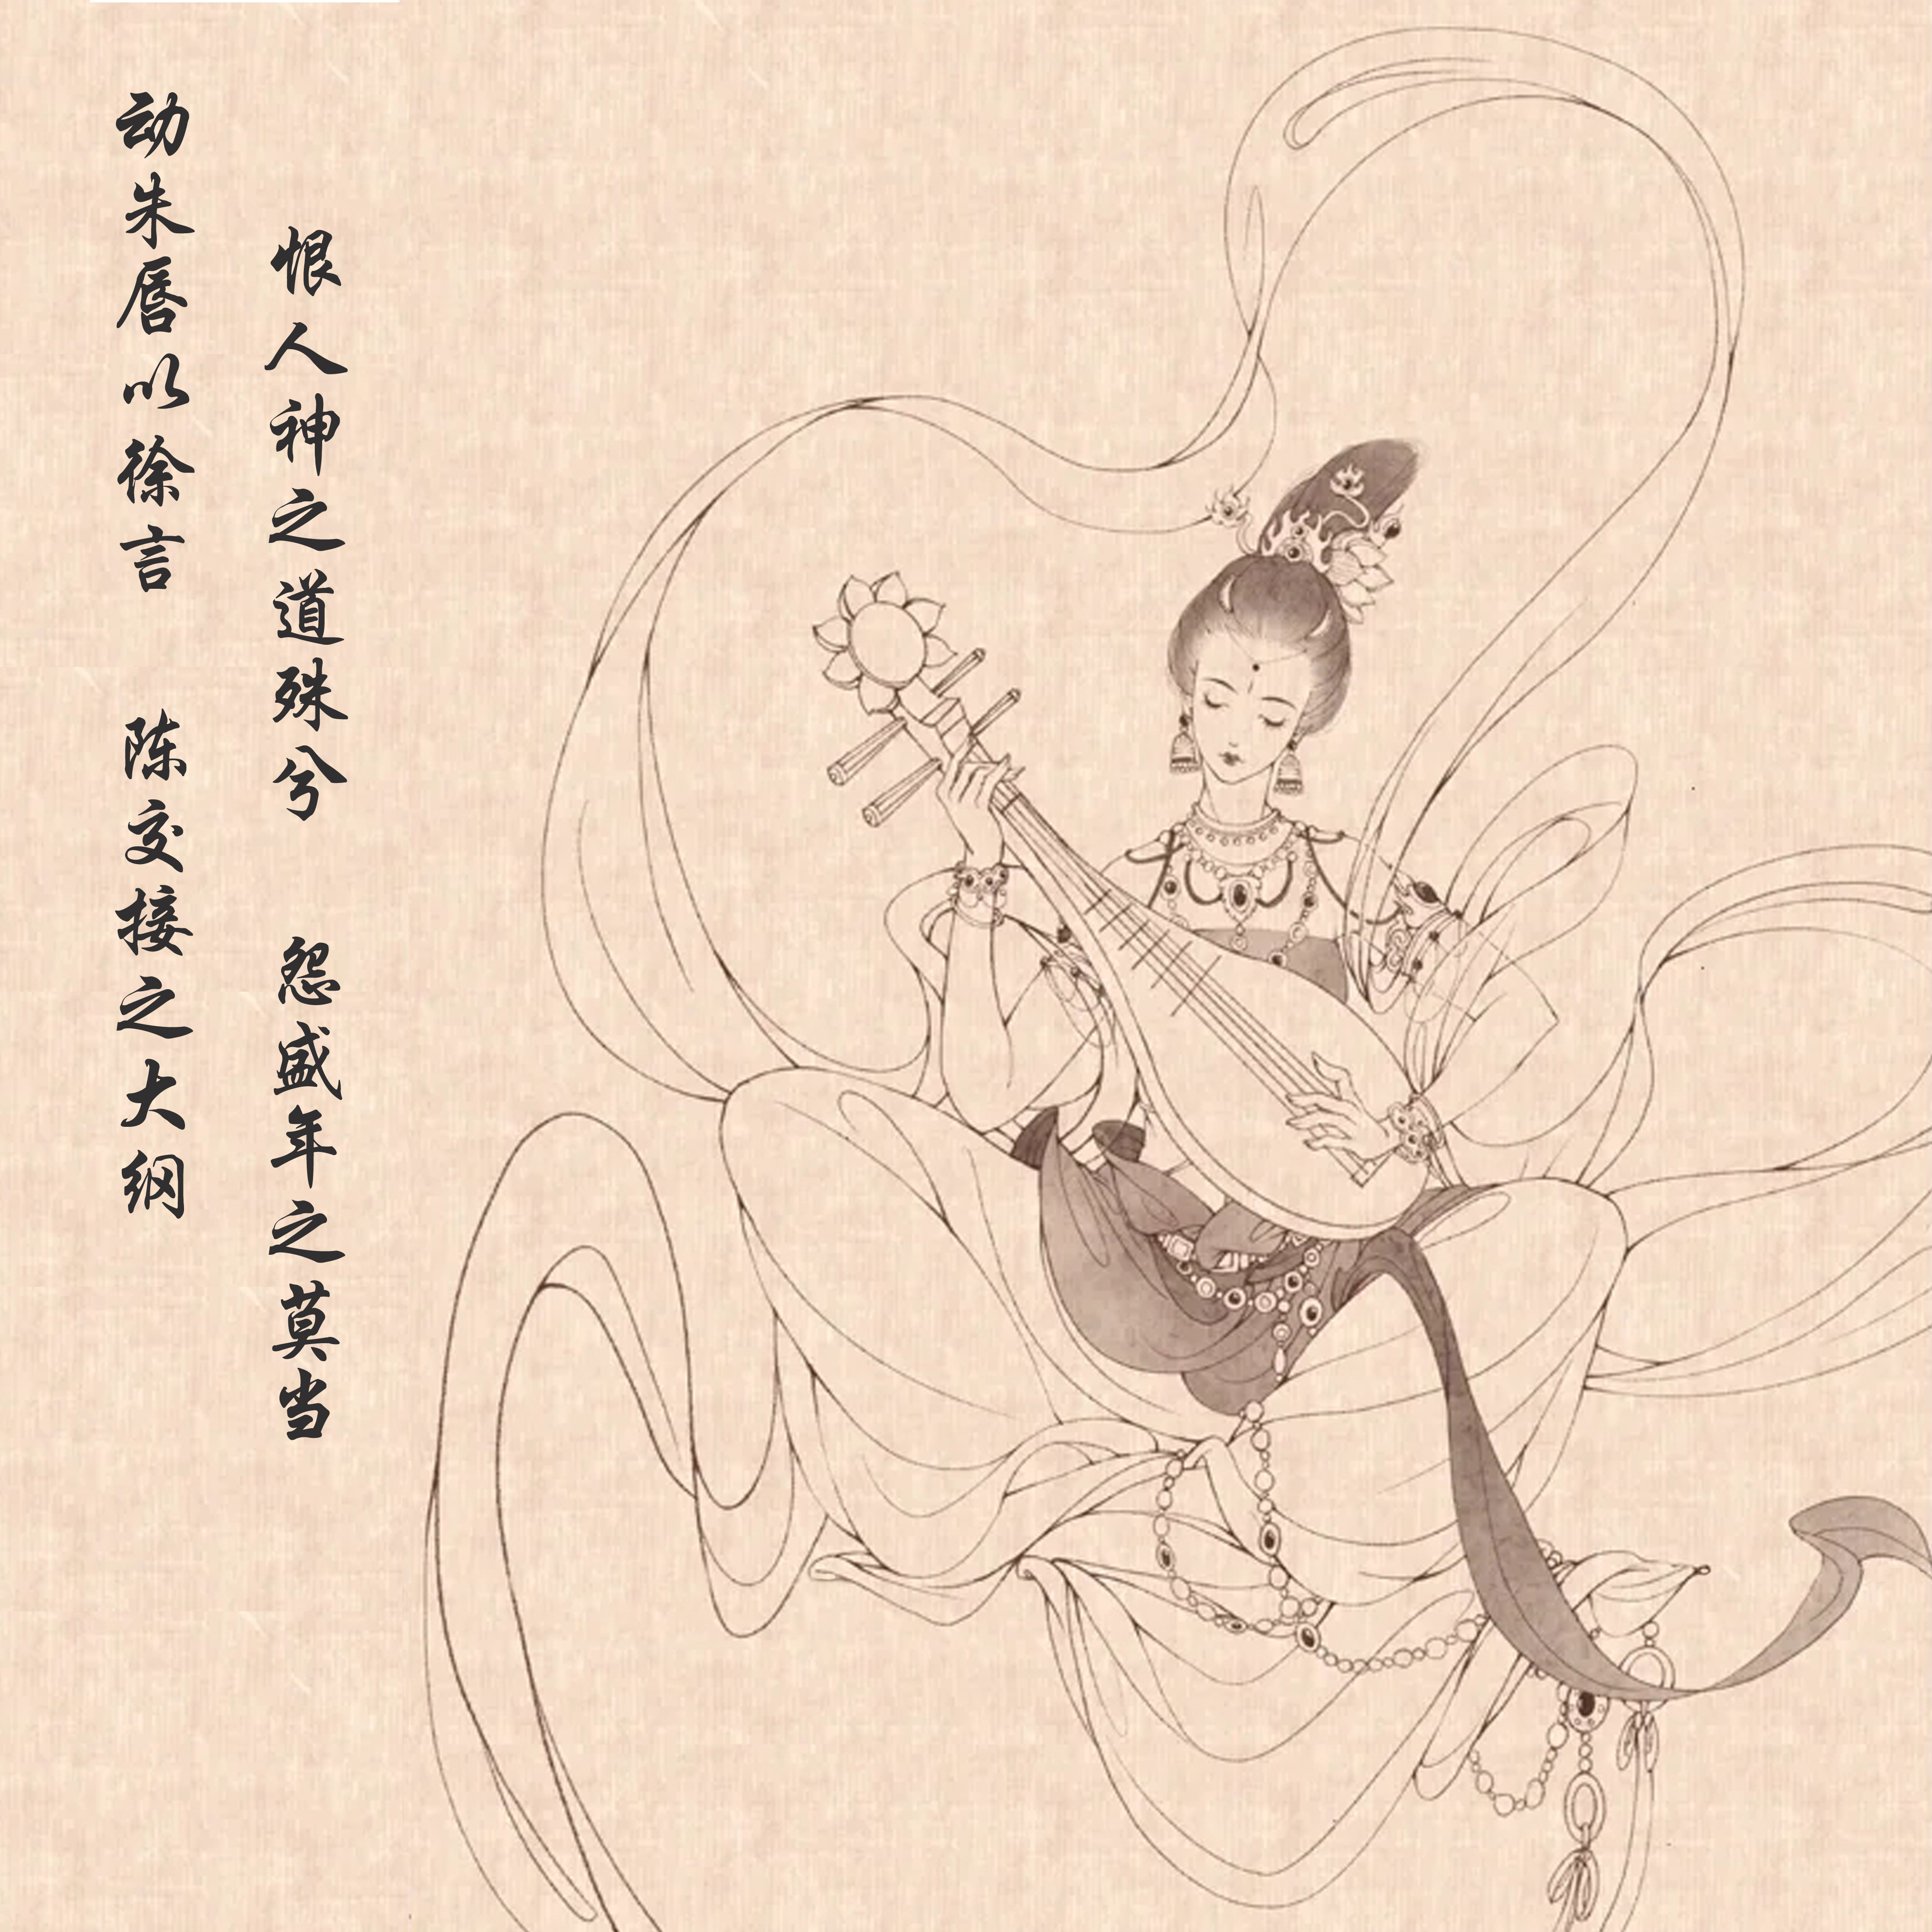 动朱唇以徐言 陈交接之大纲
恨人神之道殊兮 怨盛年之莫当